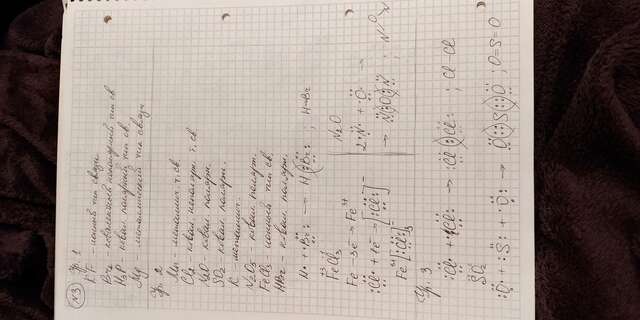 N3
Упр. 1
KF - ионный тип связи
Br₂ - ковалентный неполярный тип св
H₃P - ковал. полярный тип св.
Mg - металлический тип связи
Упр. 2
Mn - металлич. т. св.
Cl₂ - ковал. неполярн. т. св
ковал. полярн.
SO₂ - ковал. полярн.
K - металлич.
N₂O₅ - ковал. полярн.
FeCl₃ - ионный тип св.
HBr - ковал. полярн.
H• + •Br: → H:Br: ; H-Br
FeCl₃
Fe - 3e → Fe³⁺
:Cl• + 1e → [:Cl:]⁻
Fe³⁺[:Cl:]₃⁻
N₂O
2•N• + •O• →
→ N:O:N ;
Упр. 3
:Cl• + •Cl: → :Cl:Cl: ; Cl-Cl
SO₂
:O• + :S: + •O: → O::S::O ; O=S=O